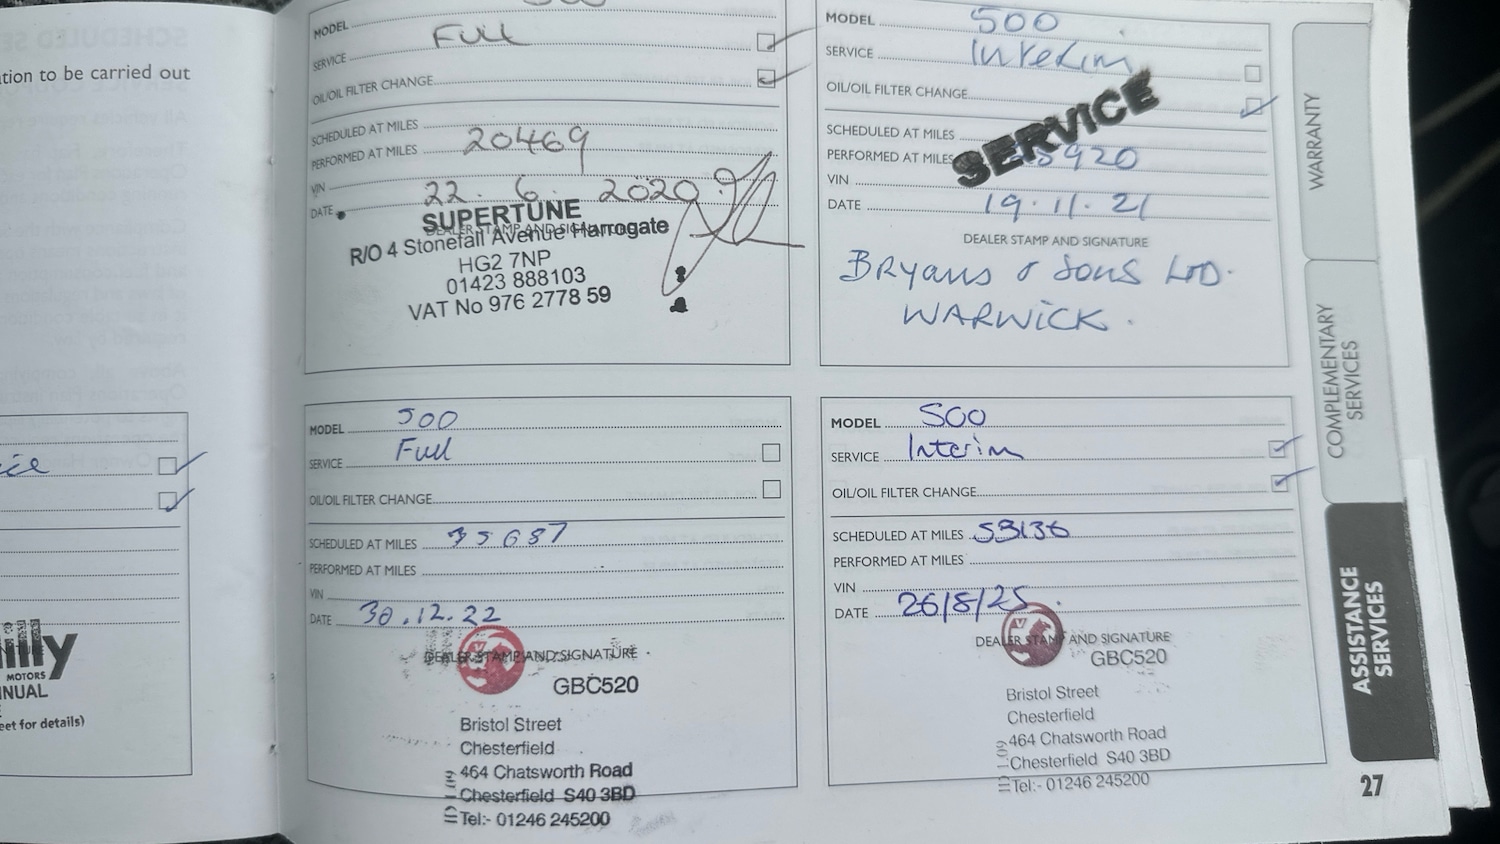 ation to be carried out
ice
illy
MOTORS
NNUAL
eet for details)
MODEL
SERVICE Full
OIL/OIL FILTER CHANGE
SCHEDULED AT MILES
PERFORMED AT MILES 20469
VIN
DATE 22. 6. 2020
DEALER STAMP AND SIGNATURE
SUPERTUNE
R/O 4 Stonefall Avenue Harrogate
HG2 7NP
01423 888103
VAT No 976 2778 59
MODEL 500
SERVICE Interim
OIL/OIL FILTER CHANGE
SERVICE
SCHEDULED AT MILES
PERFORMED AT MILES
VIN
DATE 19.11.21
DEALER STAMP AND SIGNATURE
BRyans & Sons LTD.
WARWICK.
MODEL 500
SERVICE Full
OIL/OIL FILTER CHANGE
SCHEDULED AT MILES 35687
PERFORMED AT MILES
VIN
DATE 30.12.22
DEALER STAMP AND SIGNATURE
GBC520
Bristol Street
Chesterfield
464 Chatsworth Road
Chesterfield S40 3BD
Tel:- 01246 245200
MODEL 500
SERVICE Interim
OIL/OIL FILTER CHANGE
SCHEDULED AT MILES 53136
PERFORMED AT MILES
VIN
DATE 26/8/25
DEALER STAMP AND SIGNATURE
GBC520
Bristol Street
Chesterfield
464 Chatsworth Road
Chesterfield S40 3BD
Tel:- 01246 245200
WARRANTY
COMPLEMENTARY
SERVICES
ASSISTANCE
SERVICES
27